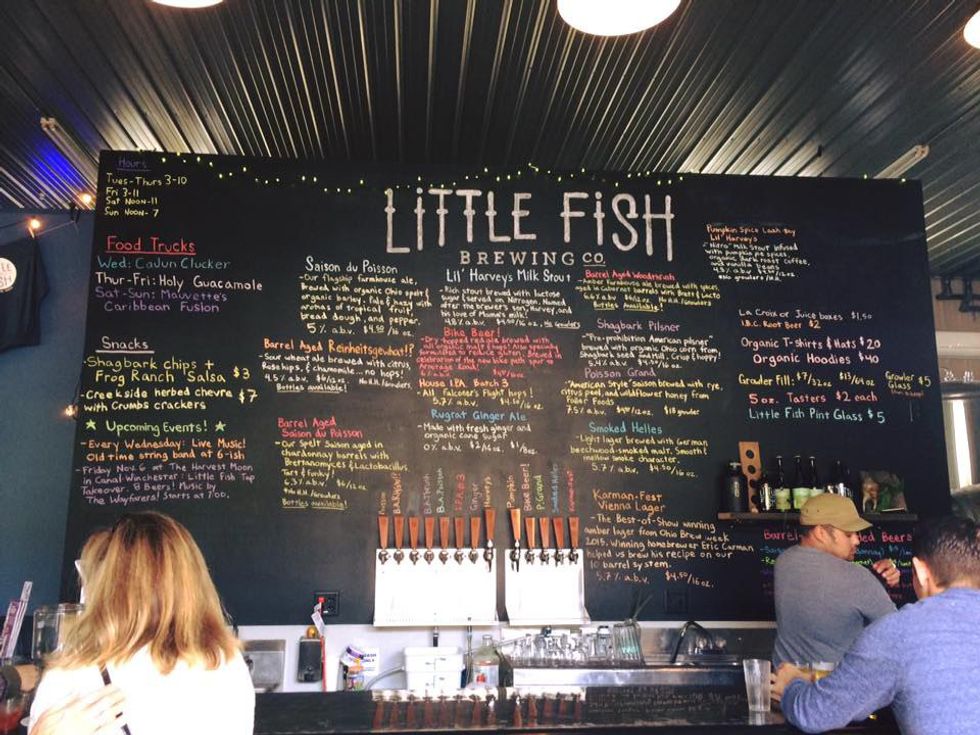 Hours
Tues-Thurs 3-10
Fri 3-11
Sat Noon-11
Sun Noon-7
Food Trucks
Wed: Cajun Clucker
Thur-Fri: Holy Guacamole
Sat-Sun: Mauvette's
Caribbean Fusion
Snacks
-Shagbark chips +
Frog Ranch Salsa $3
-Creekside herbed chevre $7
with Crumbs crackers
★ Upcoming Events! ★
-Every Wednesday: Live Music!
Old time string band at 6-ish
-Friday Nov. 6 at The Harvest Moon
in Canal Winchester: Little Fish Tap
Takeover 8 Beers! Music by
The Wayfarers! Starts at 7:00.
LiTTLE FiSH
BREWING CO.
Saison du Poisson
-Our flagship farmhouse ale,
Brewed with organic Ohio spelt &
organic barley. Pale & hazy with
aromas of tropical fruit,
bread dough, and pepper.
5% a.b.v. $4.50/16 oz.
Barrel Aged Reinheitsgewhat!?
-Sour wheat ale brewed with citrus,
Rosehips, & chamomile... no hops!
4.5% a.b.v. $6/12oz.
Bottles available!
Barrel Aged
Saison du Poisson
-Our Spelt Saison aged in
chardonnay barrels with
Brettanomyces & Lactobacillus.
Tart & Funky!
Bottles available!
Lil' Harvey's Milk Stout
-Rich stout brewed with lactose
sugar & served on Nitrogen. Named
after the brewer's son, Harvey, and
his love of Mama's milk!
4.8% a.b.v. $4.50/16oz. No growlers
Bike Beer!
-Dry hopped red ale brewed with
House I.P.A. Batch 3
-All Falconer's Flight hops!
5.7% a.b.v.
Rugrat Ginger Ale
-Made with fresh ginger and
organic cane sugar
0% a.b.v. $2/16oz. $1/8oz.
Barrel Aged Woodthrush
-Amber farmhouse ale brewed with spices,
aged in Cabernet barrels with Brett & Lacto
Bottles Available!
Shagbark Pilsner
-"Pre-prohibition American pilsner"
with organic Ohio corn from
Shagbark seed and Mill. Crisp & hoppy!
Poisson Grand
"American Style" Saison brewed with rye,
citrus peel, and wildflower honey from
7.5% a.b.v. $4.50/12oz. $18 growler
Smoked Helles
-Light lager brewed with German
beechwood-smoked malt. Smooth &
mellow smoke character.
5.7% a.b.v. $4.50/16oz.
Karman-Fest
Vienna Lager
-The Best-of-Show winning
amber lager from Ohio Brew week
2015. Winning homebrewer Eric Carman
helped us brew his recipe on our
10 barrel system.
5.7% a.b.v. $4.50/16oz.
Lil' Harvey's
"Nitro" Milk Stout infused
with pumpkin pie spices,
organic dark roast coffee,
and vanilla beans
La Croix or Juice boxes $1.50
I.B.C. Root Beer $2
Organic T-shirts & Hats $20
Organic Hoodies $40
Growler Fill: $7/32oz $13/64oz
Growler Glass $5
5oz. Tasters $2 each
Little Fish Pint Glass $5
Harvey's
Pumpkin
Bike Beer!
P. Grand
Smoked Helles
Beers